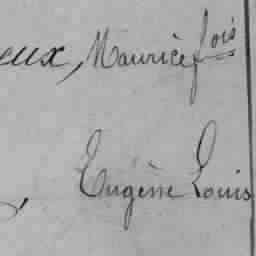 eux, Maurice fois
Eugène Louis